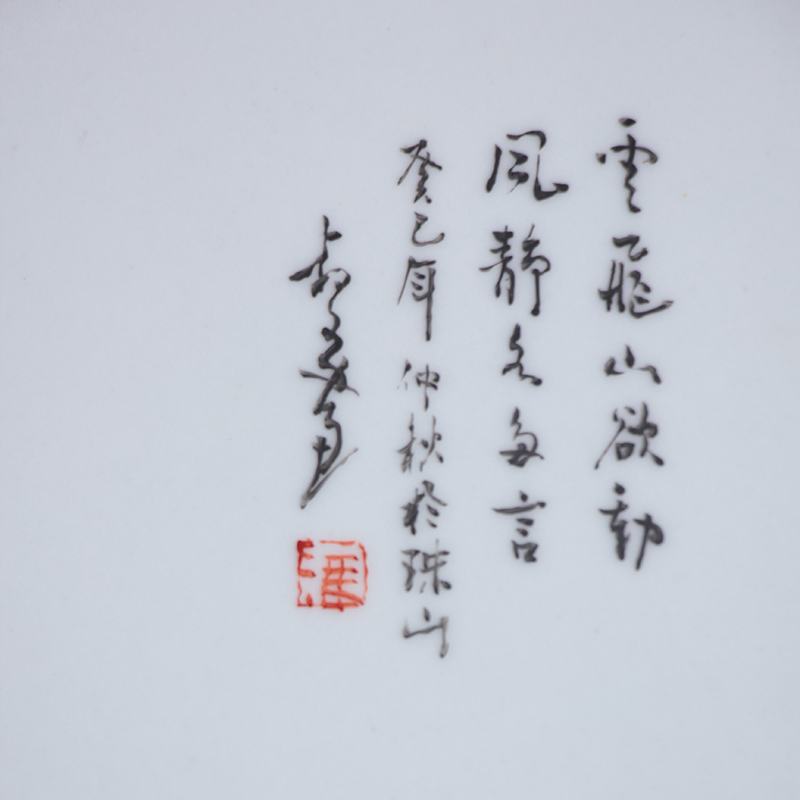 雲飛山欲動
風靜水無言
癸巳年仲秋於珠山